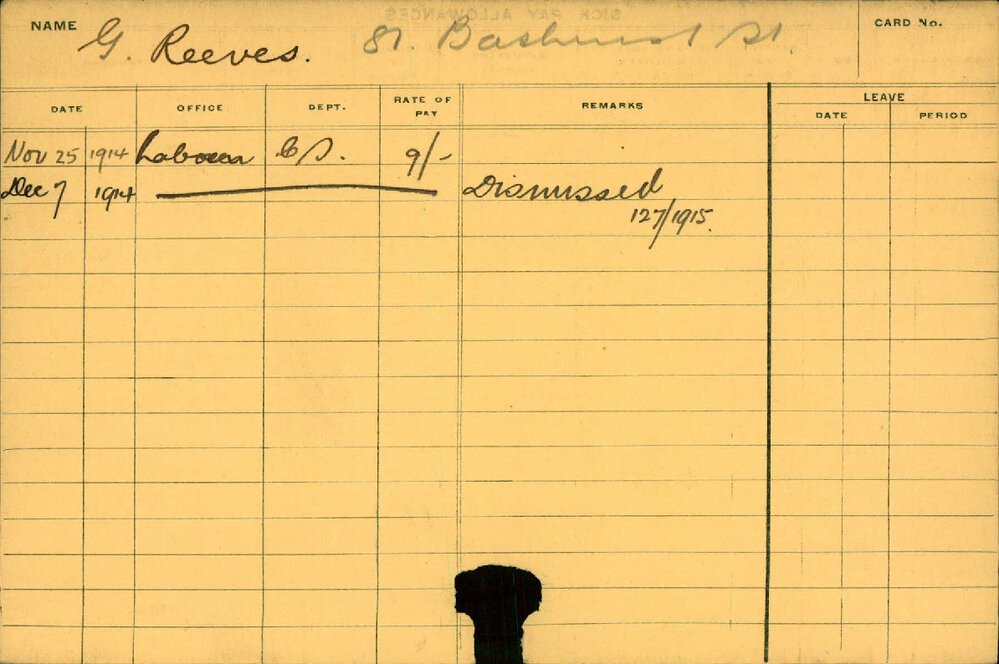 SICK PAY ALLOWANCES
NAME G. Reeves. 81. Bathurst St. CARD No.
DATE OFFICE DEPT. RATE OF PAY REMARKS LEAVE
DATE PERIOD
Nov 25 1914 Labourer C S. 9/-
Dec 7 1914 Dismissed
127/1915.